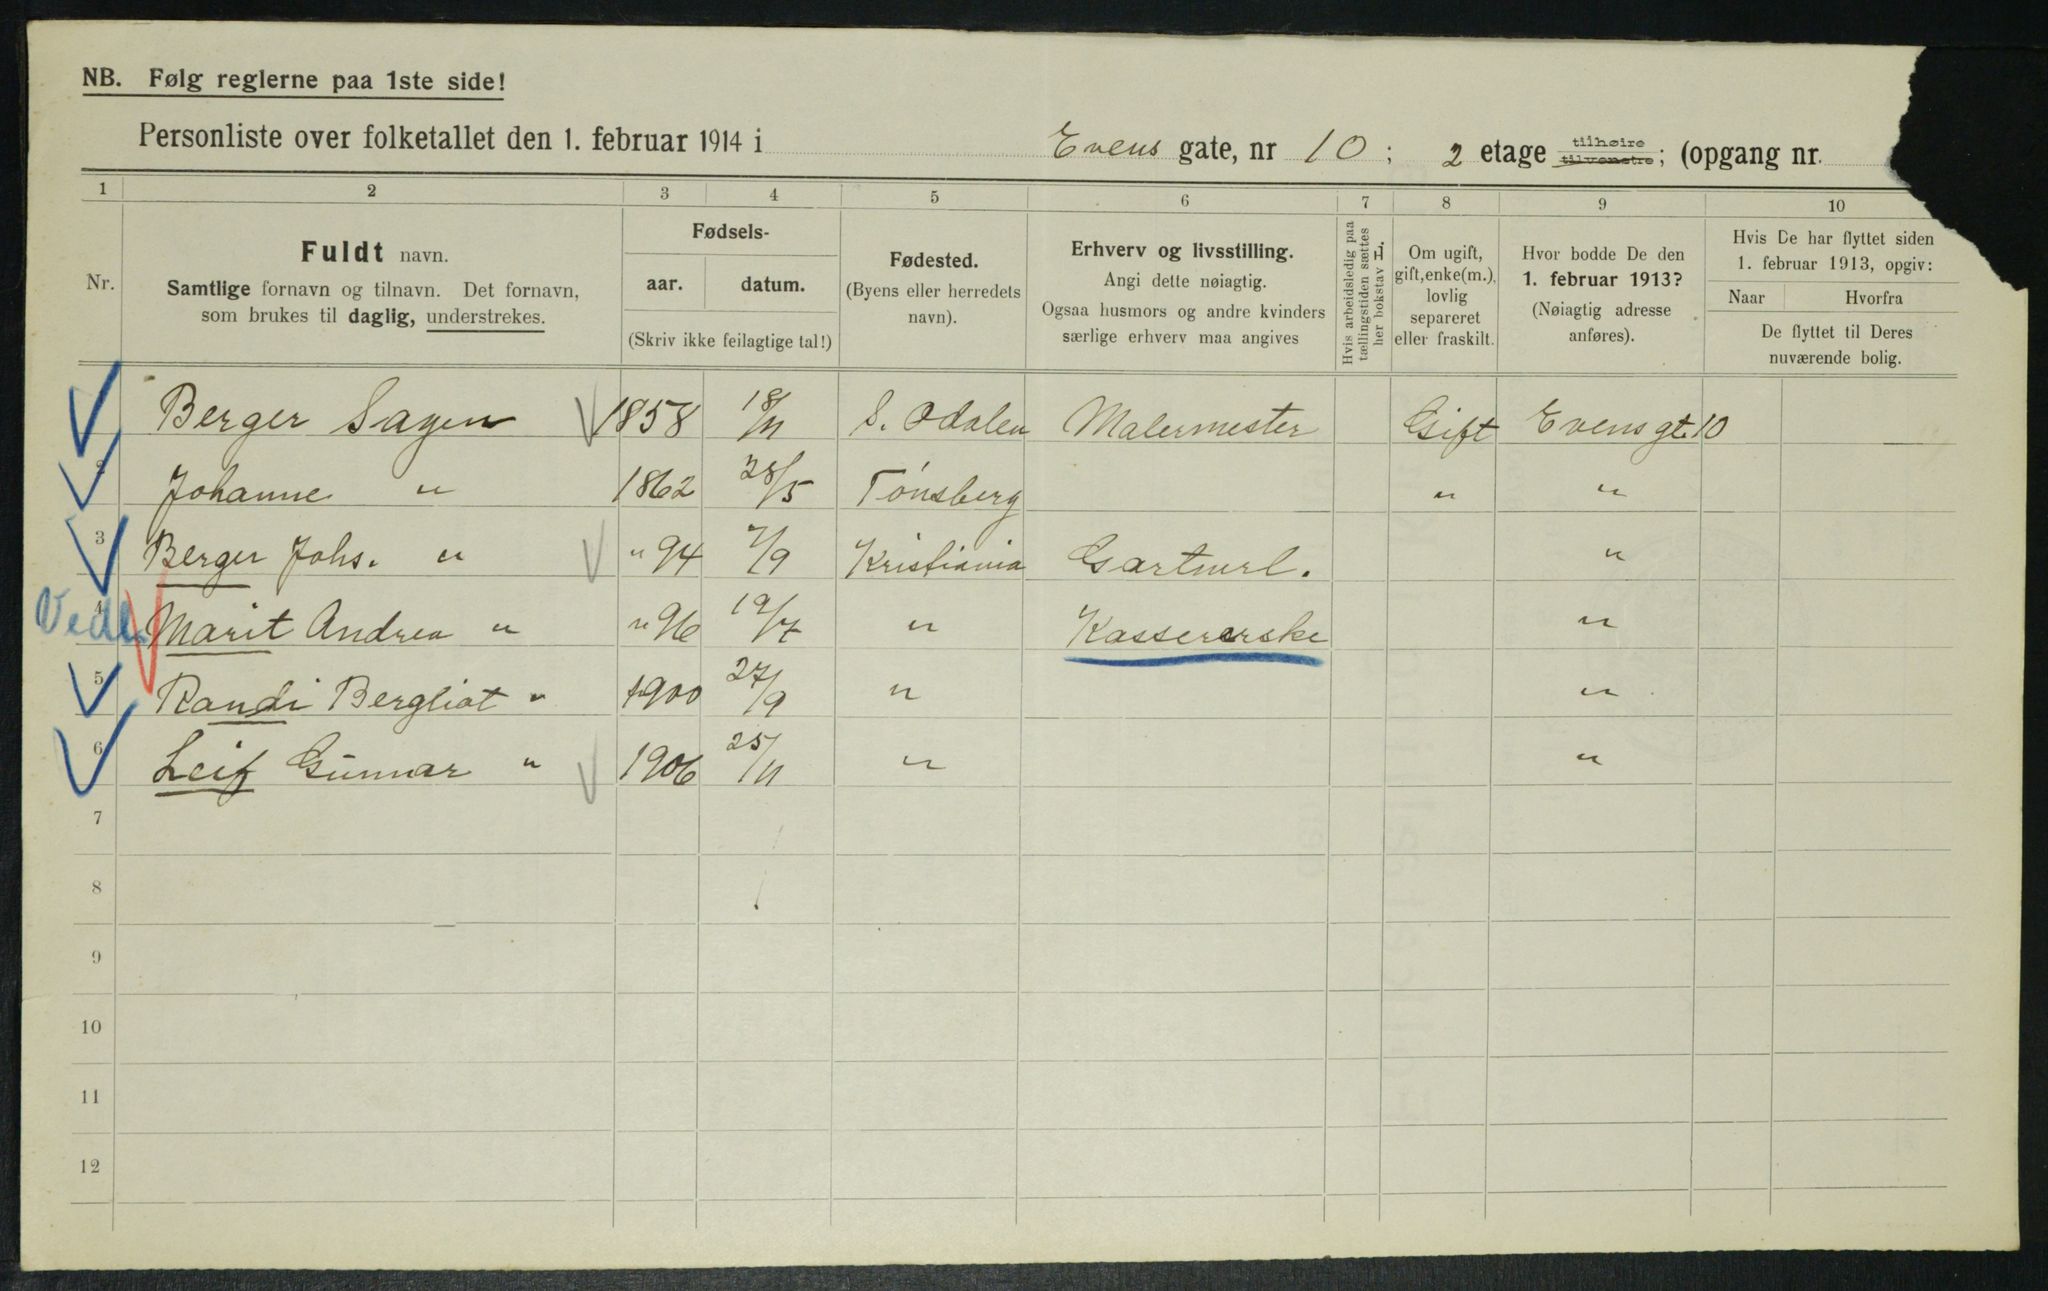 NB. Følg reglerne paa 1ste side!
Personliste over folketallet den 1. februar 1914 i Evens gate, nr 10; 2 etage tilhøire tilvenstre; (opgang nr.
1 2 3 4 5 6 7 8 9 10
Nr.
Fuldt navn.
Samtlige fornavn og tilnavn. Det fornavn,
som brukes til daglig, understrekes.
Fødsels-
aar. datum.
(Skriv ikke feilagtige tal!)
Fødested.
(Byens eller herredets
navn).
Erhverv og livsstilling.
Angi dette nøiagtig.
Ogsaa husmors og andre kvinders
særlige erhverv maa angives
Hvis arbeidsledig paa
tællingstiden sættes
her bokstav L.
Om ugift,
gift, enke(m.),
lovlig
separeret
eller fraskilt.
Hvor bodde De den
1. februar 1913?
(Nøiagtig adresse
anføres).
Hvis De har flyttet siden
1. februar 1913, opgiv:
Naar Hvorfra
De flyttet til Deres
nuværende bolig.
Berger Sagen 1858 18/11 S. Odalen Malermester Gift Evensgt. 10
2 Johanne " 1862 28/5 Tønsberg " "
3 Berger Johs. " " 94 7/9 Kristiania Gartnerl. "
4 Marit Andrea " " 96 19/7 " Kassererske "
5 Randi Bergliot " 1900 27/9 " "
6 Leif Gunnar " 1906 25/11 " "
7
8
9
10
11
12